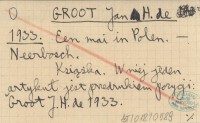 GROOT Jan H. de
1933. Een mai in Polen. –
Neerbosch.
Książka. W niej jeden
artykuł jest przedrukiem pozycji:
Groot J.H. de 1933.